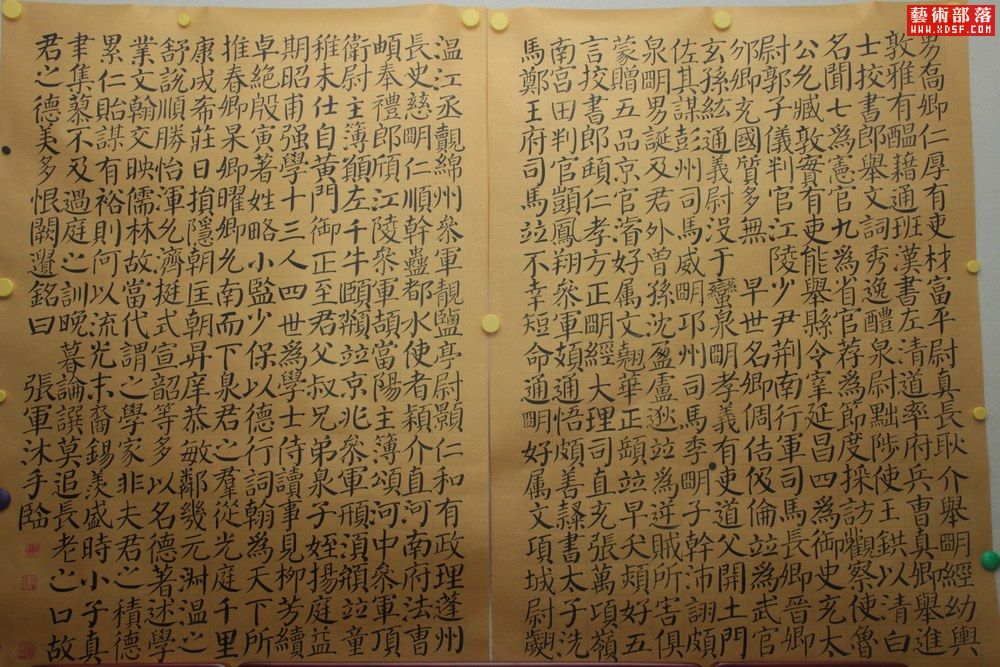 藝術部落
www.XDSF.com
男喬卿仁厚有吏材富平尉真長耿介舉明經幼輿
敦雅有醞藉通班漢書左清道率府兵曹真卿舉進
士挍書郎舉文詞秀逸醴泉尉黜陟使王鉷以清白
名聞七為憲官九為省官荐為節度採訪觀察使魯
公允臧敦實有吏能舉縣令宰延昌四為御史充太
尉郭子儀判官江陵少尹荊南行軍司馬長卿晉卿
邠卿充國質多無早世名卿倜佶伋倫竝為武官
玄孫紘通義尉没于蠻泉明孝義有吏道父開土門
佐其謀彭州司馬威明邛州司馬季明子幹沛詡頗
泉明男誕及君外曾孫沈盈盧逖竝為逆賊所害俱
蒙贈五品京官濬好属文翹華正頣竝早夭頍好五
言挍書郎頲仁孝方正明經大理司直充張萬頃嶺
南宮田判官顗鳳翔參軍頗通悟頗善隸書太子洗
馬鄭王府司馬竝不幸短命通明好属文項城尉翽
溫江丞覿綿州參軍靚鹽亭尉顥仁和有政理蓬州
長史慈明仁順幹蠱都水使者穎介直河南府法曹
頔奉禮郎頎江陵參軍頡當陽主簿頌河中參軍頂
衛尉主簿願左千牛頤竝京兆參軍須竝童
稚未仕自黃門御正至君父叔兄弟泉子姪揚庭益
期昭甫强學十三人四世為學士侍讀事見柳芳續
卓絕殷寅著姓略小監少保以德行詞翰為天下所
推春卿杲卿曜卿允南而下泉君之羣從光庭千里
康成希莊日損隱朝匡朝昇庠恭敏鄰幾元淵温之
舒說順勝怡渾允濟挺式宣韶等多以名德著述學
業文翰交映儒林故當代謂之學家非夫君之積德
累仁貽謀有裕則何以流光末裔錫羨盛時小子真
聿集慕不及過庭之訓晚暮論譔莫追長老之口故
君之德美多恨闕遺銘曰 張軍沐手臨